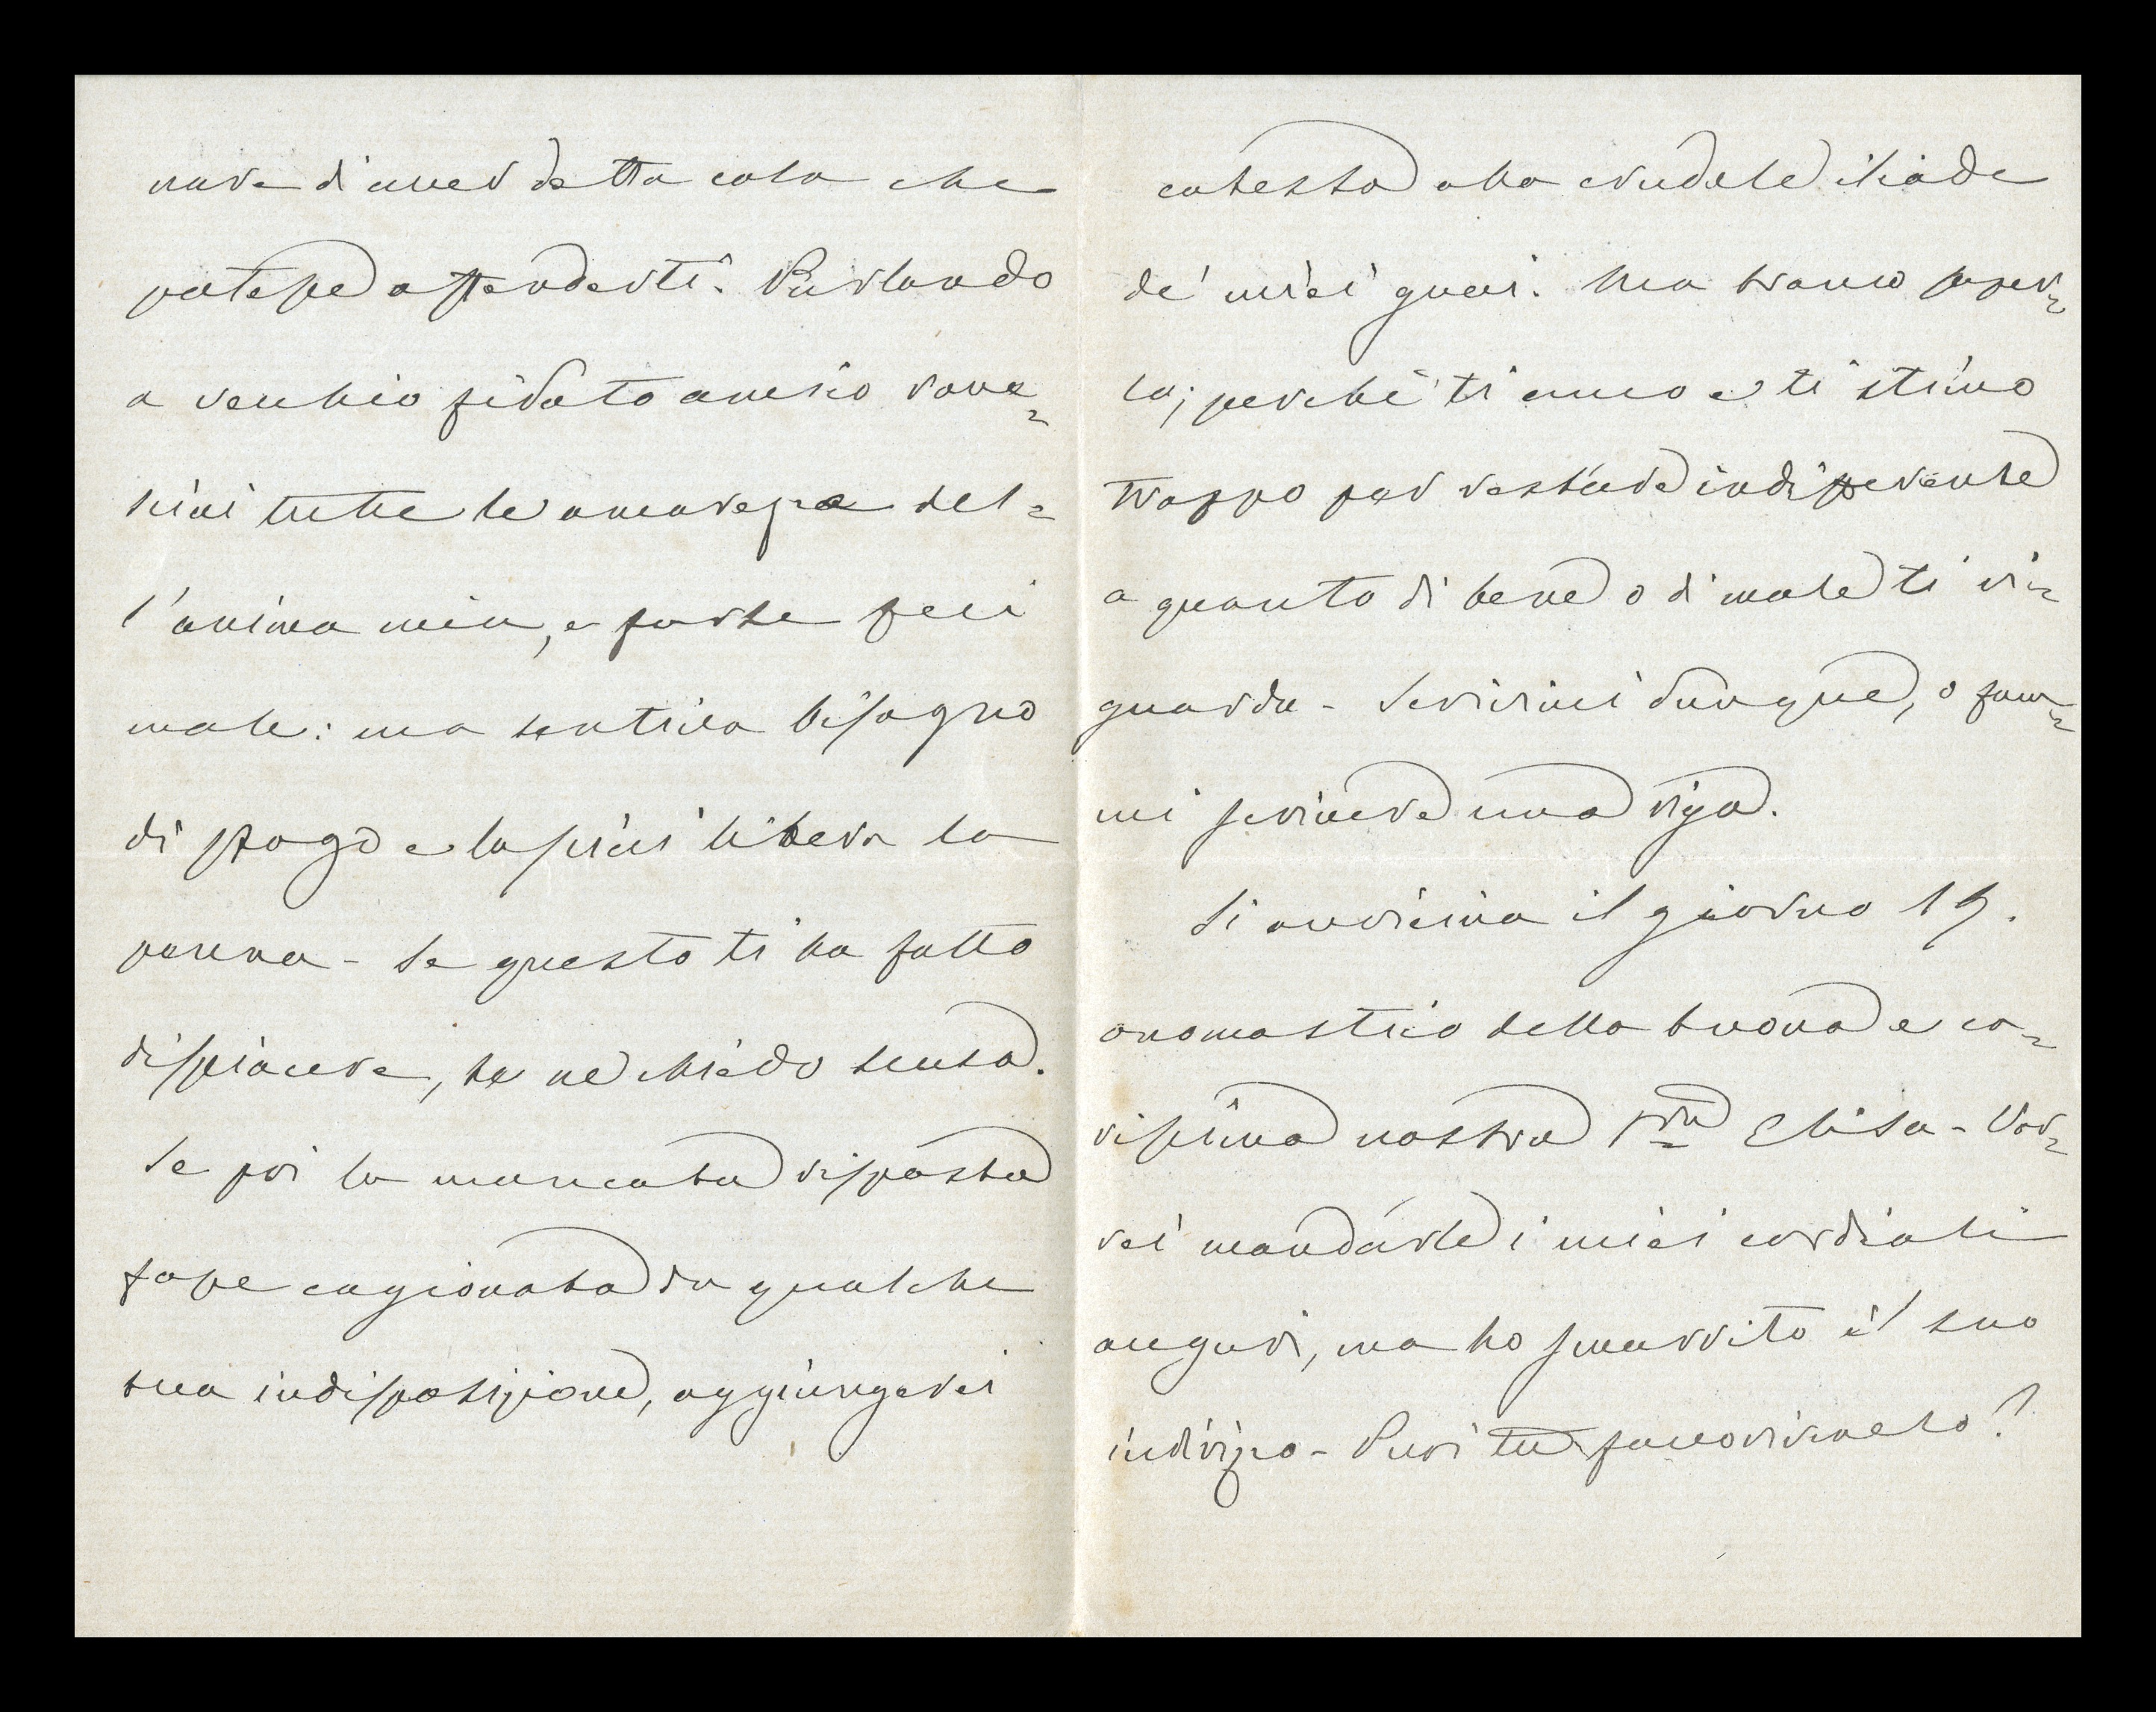 nare di aver detta cosa che
potesse offenderti. Parlando
a vecchio fidato amico rove=
sciai tutte le amarezze del=
l'anima mia, e forse feci
male: ma sentiva bisogno
di sfogo e lasciai libera la
penna - Se questo ti ha fatto
dispiacere, te ne chiedo scusa.
Se poi la mancata risposta
fosse cagionata da qualche
tua indisposizione, aggiungerei
cotesta alla crudele iliade
de' miei guai. Ma bramo saper=
lo; perchè ti amo e ti stimo
troppo per restare indifferente
a quanto di bene o di male ti ri=
guarda - Scrivimi dunque, o fam=
mi scrivere una riga.
Si avvicina il giorno 19.
onomastico della buona e ca=
rissima nostra Sra Elisa - Vor=
rei mandarle i miei cordiali
auguri, ma ho smarrito il suo
indirizzo - Puoi tu favorirmelo?